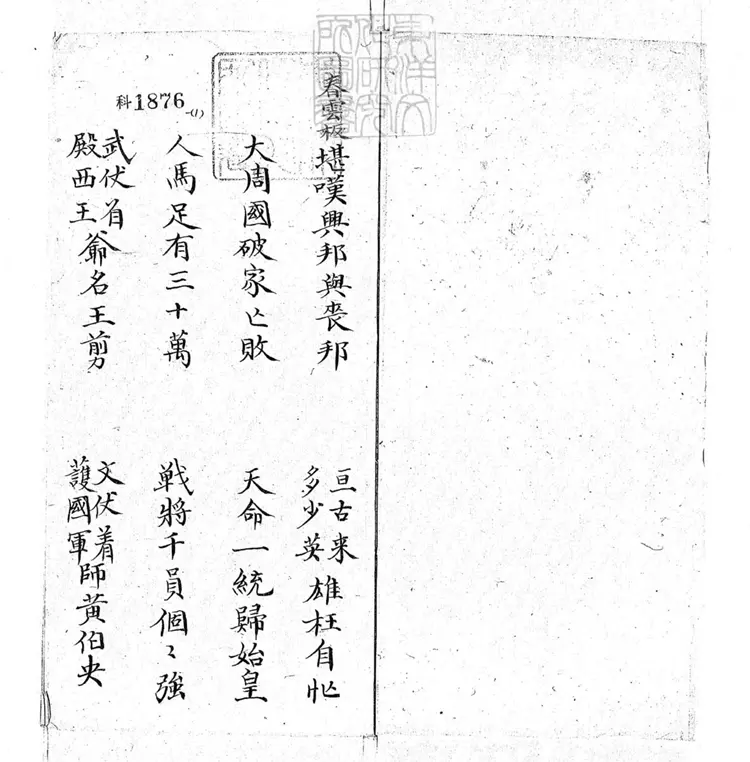 東洋文化研究所圖書
科1876
(1)
春雲板 堪嘆興邦與喪邦 亘古来多少英雄枉自忙
大周國破家亡敗 天命一統歸始皇
人馬足有三十萬 戦將千員個〻強
武伏着殿西王爺名王剪 文伏着護國軍師黃伯央